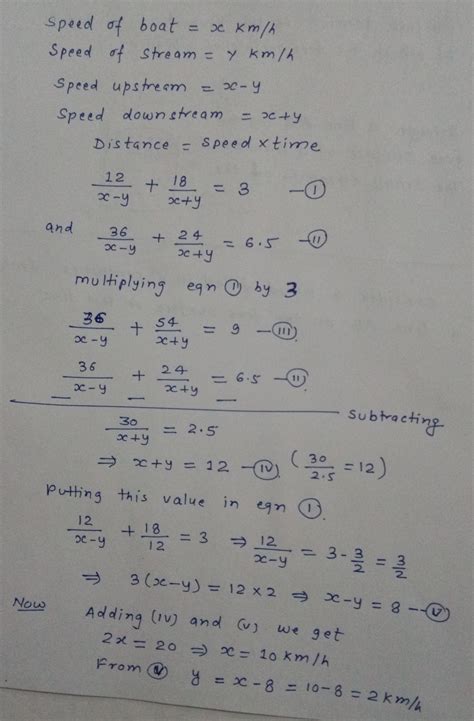 Speed of boat = x km/h
Speed of stream = y km/h
Speed upstream = x-y
Speed downstream = x+y
Distance = speed × time
12/(x-y) + 18/(x+y) = 3 —(I)
and 36/(x-y) + 24/(x+y) = 6.5 —(II)
multiplying eqn (I) by 3
36/(x-y) + 54/(x+y) = 9 —(III)
36/(x-y) + 24/(x+y) = 6.5 —(II)
— — — subtracting
30/(x+y) = 2.5
⇒ x+y = 12 —(IV) (30/2.5 = 12)
Putting this value in eqn (I)
12/(x-y) + 18/12 = 3 ⇒ 12/(x-y) = 3 - 3/2 = 3/2
⇒ 3(x-y) = 12×2 ⇒ x-y = 8 —(V)
Now Adding (IV) and (V) we get
2x = 20 ⇒ x = 10 km/h
From (V) y = x-8 = 10-8 = 2 km/h